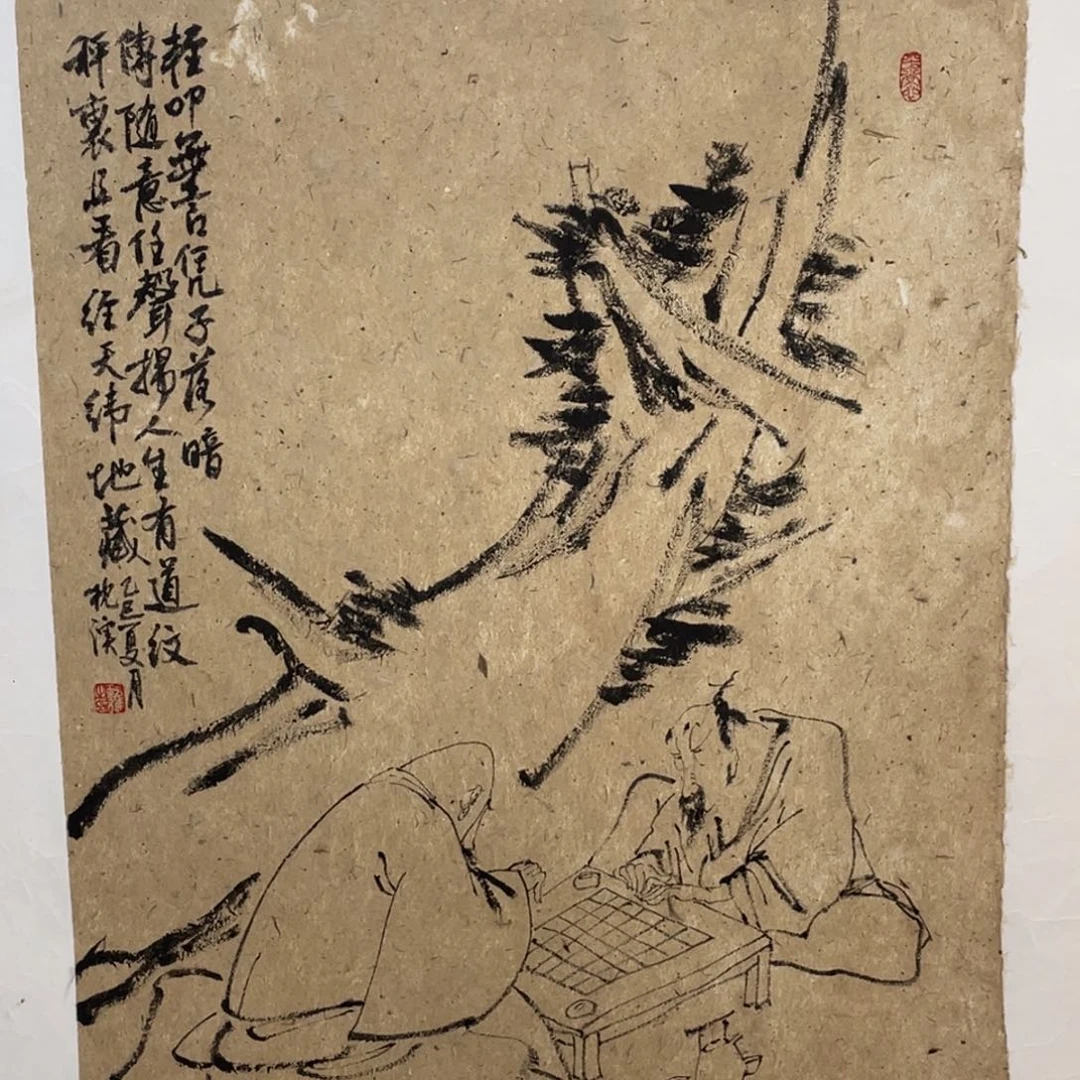 輕叩無言凭子落暗
傳隨意任聲揚人生有道紋
枰裏且看經天緯地藏
乙巳夏月
枕溪